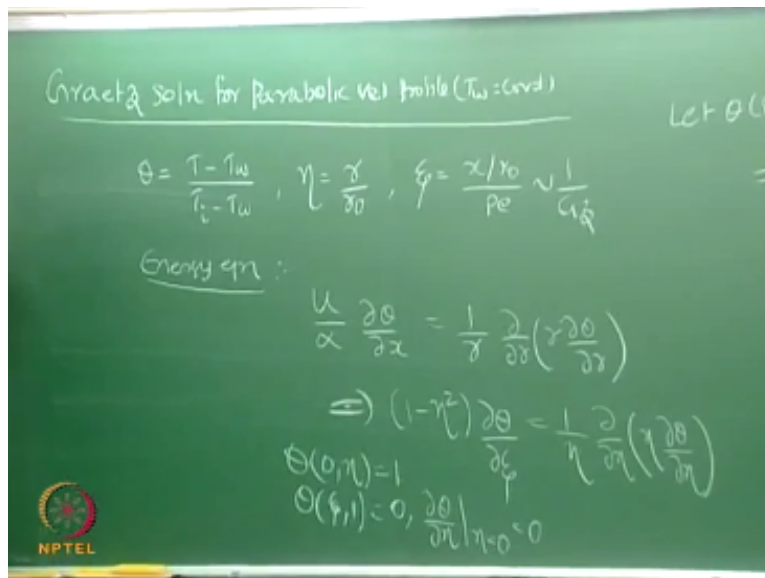 Graetz soln for Parabolic vel profile (Tw = const)
Let θ(
=
θ = (T - Tw)/(Ti - Tw), η = r/r0, ξ = (x/r0)/Pe ~ 1/Gz
Energy eqn :-
u/α ∂θ/∂x = 1/r ∂/∂r (r ∂θ/∂r)
=) (1-η²) ∂θ/∂ξ = 1/η ∂/∂η (η ∂θ/∂η)
θ(0,η) = 1
θ(ξ,1) = 0, ∂θ/∂η|η=0 = 0
NPTEL